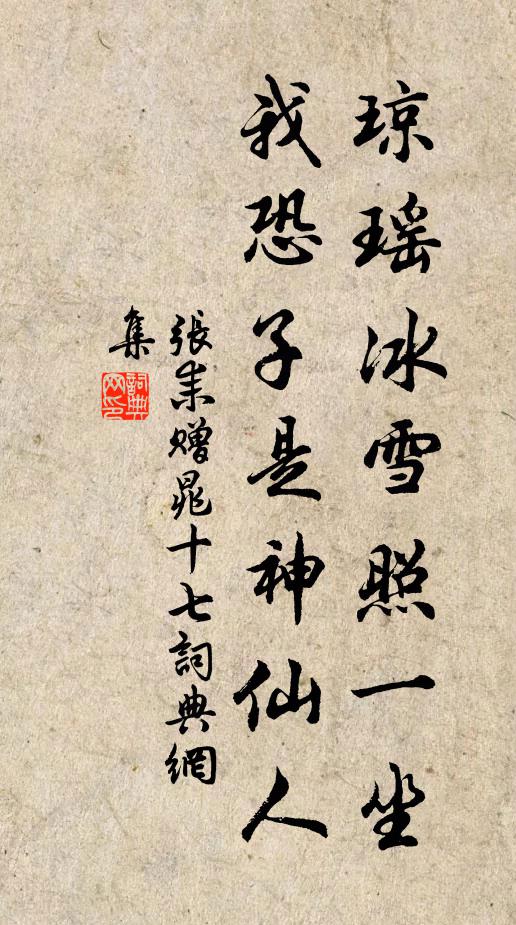 琼瑶冰雪照一坐
我恐子是神仙人
張耒贈晁十七詞典網
集
詞典網印